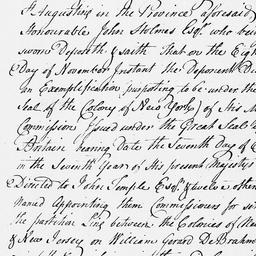 St Augustine in the Province aforesaid
Honourable John Holmes Esqr. who bei
sworn Deposeth & saith that on the Eigh
Day of November Instant the Deponent Di
an Exemplification purporting to be under the
Seal of the Colony of New York, of His M
Commission Issued under the Great Seal
Britain bearing Date the Seventh Day of O
in the Seventh Year of His present Majestys
Directed to John Temple Esqr. & twelve other
named Appointing them Commissioners for se
the partition Line between the Colonies of New
& New Jersey on William Gerard De Brahm